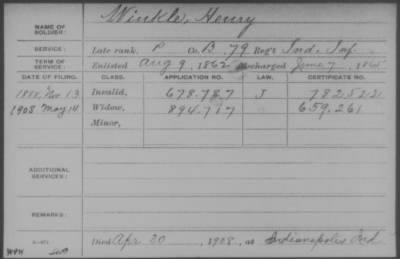 NAME OF SOLDIER: Winkle, Henry
SERVICE: Late rank, P Co. B, 79 Reg't Ind. Inf.
TERM OF SERVICE: Enlisted Aug 9, 1862 Discharged June 7, 1865
DATE OF FILING. CLASS. APPLICATION NO. LAW. CERTIFICATE NO.
1888, Nov 13 Invalid, 678.787 J 782522
1908 May 14 Widow, 894.717 659.261
Minor,
ADDITIONAL SERVICES:
REMARKS:
Died Apr 30, 1908, at Indianapolis Ind